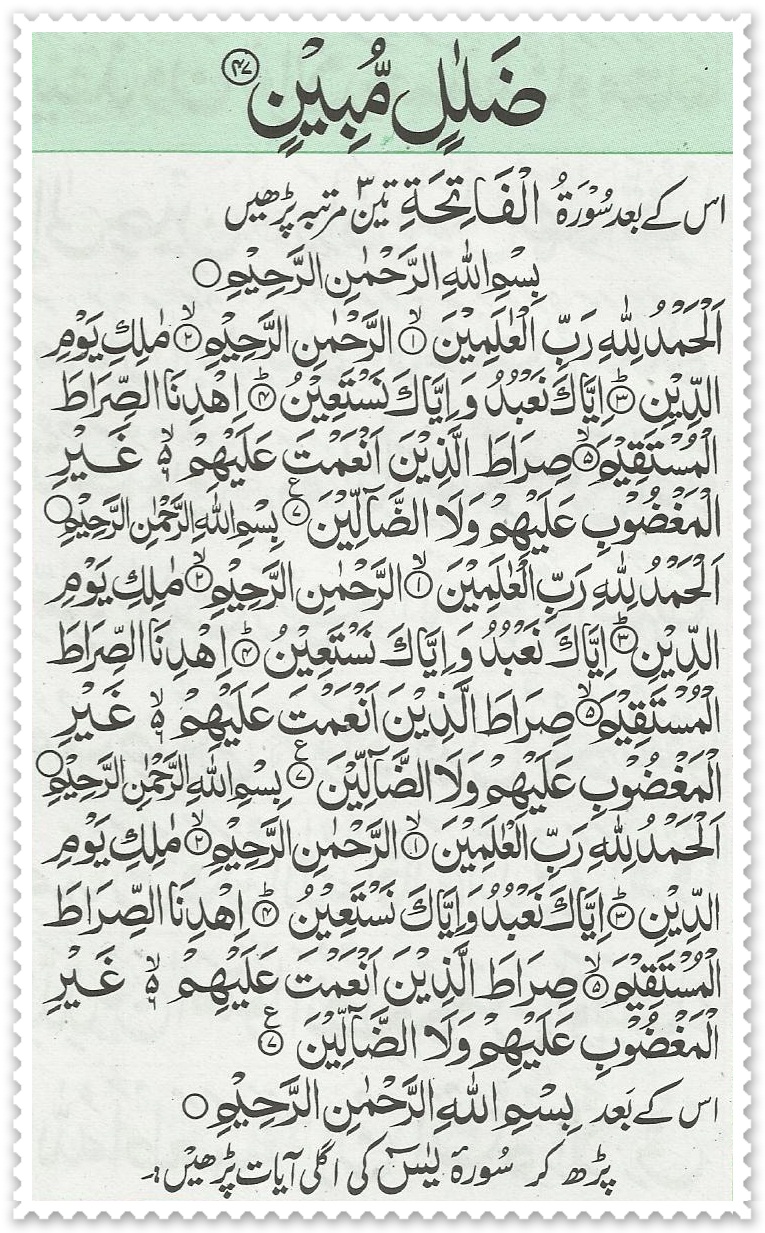 ضَلٰلٍ مُّبِيْنٍ ﴿۴۷﴾
اس کے بعد سُوْرَةُ الْفَاتِحَةِ تین ۳ مرتبہ پڑھیں
بِسْمِ اللهِ الرَّحْمٰنِ الرَّحِيْمِ ○
اَلْحَمْدُ لِلّٰهِ رَبِّ الْعٰلَمِيْنَ ۙ﴿۱﴾ الرَّحْمٰنِ الرَّحِيْمِ ۙ﴿۲﴾ مٰلِكِ يَوْمِ
الدِّيْنِ ؕ﴿۳﴾ اِيَّاكَ نَعْبُدُ وَ اِيَّاكَ نَسْتَعِيْنُ ؕ﴿۴﴾ اِهْدِنَا الصِّرَاطَ
الْمُسْتَقِيْمَ ۙ﴿۵﴾ صِرَاطَ الَّذِيْنَ اَنْعَمْتَ عَلَيْهِمْ ۙ۬ۦ غَيْرِ
الْمَغْضُوْبِ عَلَيْهِمْ وَلَا الضَّآلِّيْنَ ﴿۷﴾ع بِسْمِ اللهِ الرَّحْمٰنِ الرَّحِيْمِ ○
اَلْحَمْدُ لِلّٰهِ رَبِّ الْعٰلَمِيْنَ ۙ﴿۱﴾ الرَّحْمٰنِ الرَّحِيْمِ ۙ﴿۲﴾ مٰلِكِ يَوْمِ
الدِّيْنِ ؕ﴿۳﴾ اِيَّاكَ نَعْبُدُ وَ اِيَّاكَ نَسْتَعِيْنُ ؕ﴿۴﴾ اِهْدِنَا الصِّرَاطَ
الْمُسْتَقِيْمَ ۙ﴿۵﴾ صِرَاطَ الَّذِيْنَ اَنْعَمْتَ عَلَيْهِمْ ۙ۬ۦ غَيْرِ
الْمَغْضُوْبِ عَلَيْهِمْ وَلَا الضَّآلِّيْنَ ﴿۷﴾ع بِسْمِ اللهِ الرَّحْمٰنِ الرَّحِيْمِ ○
اَلْحَمْدُ لِلّٰهِ رَبِّ الْعٰلَمِيْنَ ۙ﴿۱﴾ الرَّحْمٰنِ الرَّحِيْمِ ۙ﴿۲﴾ مٰلِكِ يَوْمِ
الدِّيْنِ ؕ﴿۳﴾ اِيَّاكَ نَعْبُدُ وَ اِيَّاكَ نَسْتَعِيْنُ ؕ﴿۴﴾ اِهْدِنَا الصِّرَاطَ
الْمُسْتَقِيْمَ ۙ﴿۵﴾ صِرَاطَ الَّذِيْنَ اَنْعَمْتَ عَلَيْهِمْ ۙ۬ۦ غَيْرِ
الْمَغْضُوْبِ عَلَيْهِمْ وَلَا الضَّآلِّيْنَ ﴿۷﴾ع
اس کے بَعد بِسْمِ اللهِ الرَّحْمٰنِ الرَّحِيْمِ ○
پڑھ کر سُورۂ یٰسٓ کی اگلی آیات پڑھیں۔